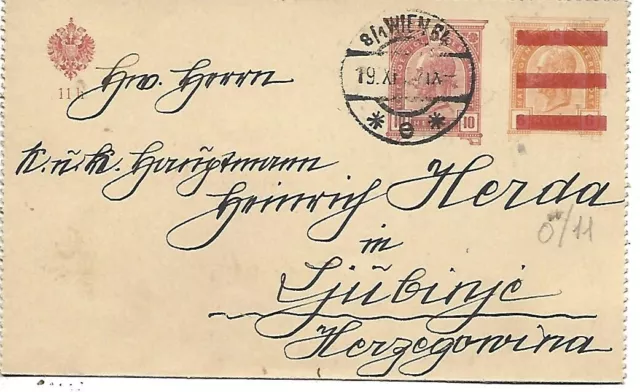 8/1 WIEN 64
11 h
19.XI. IX-
10 10
6 6
e
Hw. Herrn
K. u. K. Hauptmann
Heinrich Herda
in
Ljubinje
Herzegowina
Ö/11